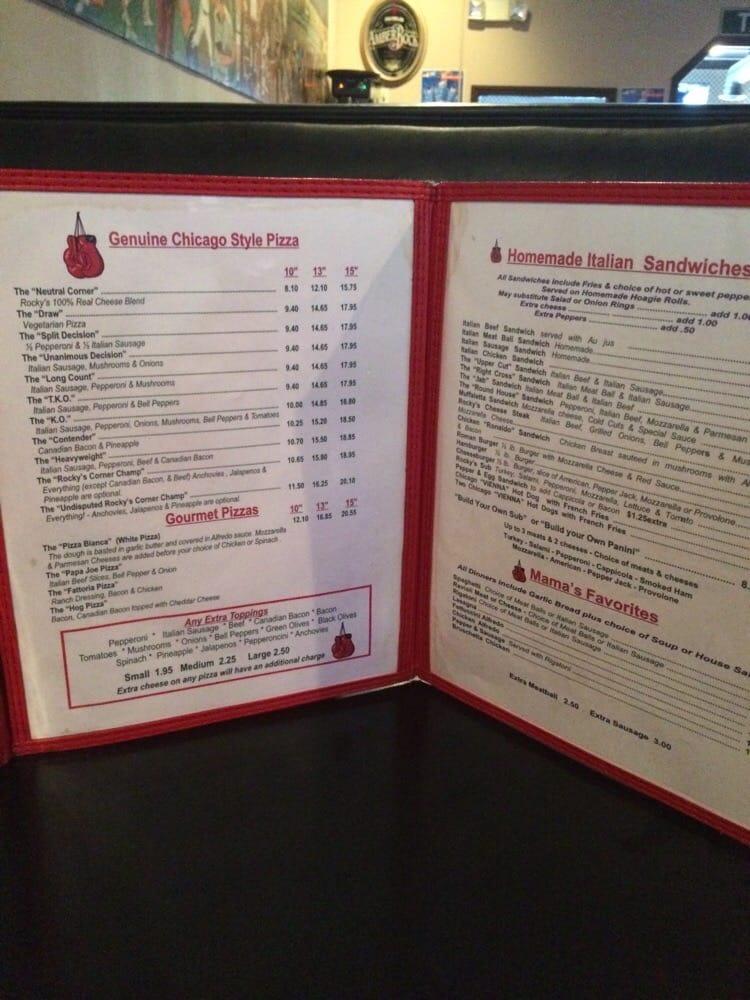 AMBERBOCK
Genuine Chicago Style Pizza
10" 13" 15"
The "Neutral Corner" 8.10 12.10 15.75
Rocky's 100% Real Cheese Blend
The "Draw" 9.40 14.65 17.95
Vegetarian Pizza
The "Split Decision" 9.40 14.65 17.95
½ Pepperoni & ½ Italian Sausage
The "Unanimous Decision" 9.40 14.65 17.95
Italian Sausage, Mushrooms & Onions
The "Long Count" 9.40 14.65 17.95
Italian Sausage, Pepperoni & Mushrooms
The "T.K.O." 9.40 14.65 17.95
Italian Sausage, Pepperoni & Bell Peppers
The "K.O." 10.00 14.85 18.80
Italian Sausage, Pepperoni, Onions, Mushrooms, Bell Peppers & Tomatoes
The "Contender" 10.25 15.20 18.50
Canadian Bacon & Pineapple
The "Heavyweight" 10.70 15.50 18.85
Italian Sausage, Pepperoni, Beef & Canadian Bacon
The "Rocky's Corner Champ" 10.65 15.80 18.95
Everything (except Canadian Bacon, & Beef) Anchovies , Jalapenos &
Pineapple are optional.
The "Undisputed Rocky's Corner Champ" 11.50 16.25 20.10
Everything! - Anchovies, Jalapenos & Pineapple are optional.
Gourmet Pizzas 10" 13" 15"
12.10 16.85 20.55
The "Pizza Bianca" (White Pizza)
The dough is basted in garlic butter and covered in Alfredo sauce. Mozzarella
& Parmesan Cheeses are added before your choice of Chicken or Spinach.
The "Papa Joe Pizza"
Italian Beef Slices, Bell Pepper & Onion
The "Fattoria Pizza"
Ranch Dressing, Bacon & Chicken
The "Hog Pizza"
Bacon, Canadian Bacon topped with Cheddar Cheese
Any Extra Toppings
Pepperoni * Italian Sausage * Beef * Canadian Bacon * Bacon
Tomatoes * Mushrooms * Onions * Bell Peppers * Green Olives * Black Olives
Spinach * Pineapple * Jalapenos * Pepperoncini * Anchovies
Small 1.95 Medium 2.25 Large 2.50
Extra cheese on any pizza will have an additional charge
Homemade Italian Sandwiches
All Sandwiches include Fries & choice of hot or sweet peppe
Served on Homemade Hoagie Rolls.
May substitute Salad or Onion Rings add 1.00
Extra cheese add 1.00
Extra Peppers add .50
Italian Beef Sandwich served with Au jus
Italian Meat Ball Sandwich Homemade
Italian Sausage Sandwich Homemade
Italian Chicken Sandwich
The "Upper Cut" Sandwich Italian Beef & Italian Sausage
The "Right Cross" Sandwich Italian Meat Ball & Italian Sausage
The "Jab" Sandwich Italian Meat Ball & Italian Beef
The "Round House" Sandwich Pepperoni, Italian Beef, Mozzarella & Parmesan
Muffaletta Sandwich Mozzarella cheese, Cold Cuts & Special Sauce
Rocky's Cheese Steak Italian Beef, Grilled Onions, Bell Peppers & Mu
Mozzarella Cheese
Chicken "Ronaldo" Sandwich Chicken Breast sauteed in mushrooms with Al
& Bacon
Roman Burger ½ lb. Burger with Mozzarella Cheese & Red Sauce
Hamburger ½ lb. Burger
Cheeseburger ½ lb. Burger, slice of American, Pepper Jack, Mozzarella or Provolone
Rocky's Sub Turkey, Salami, Pepperoni, Mozzarella, Lettuce & Tomato
Pepper & Egg Sandwich to add Cappicola or Bacon $1.25extra
Chicago "VIENNA" Hot Dog with French Fries
Two Chicago "VIENNA" Hot Dogs with French Fries
"Build Your Own Sub" or "Build your Own Panini" 8.
Up to 3 meats & 2 cheeses - Choice of meats & cheeses
Turkey - Salami - Pepperoni - Cappicola - Smoked Ham
Mozzarella - American - Pepper Jack - Provolone
Mama's Favorites
All Dinners include Garlic Bread plus choice of Soup or House Sa
Spaghetti Choice of Meat Balls or Italian Sausage
Ravioli Meat or Cheese - Choice of Meat Balls or Italian Sausage
Rigatoni Choice of Meat Balls or Italian Sausage
Lasagna
Fettuccini Alfredo
Chicken Alfredo
Pepper & Sausage Served with Rigatoni
Bruschetta Chicken
Extra Meatball 2.50 Extra Sausage 3.00